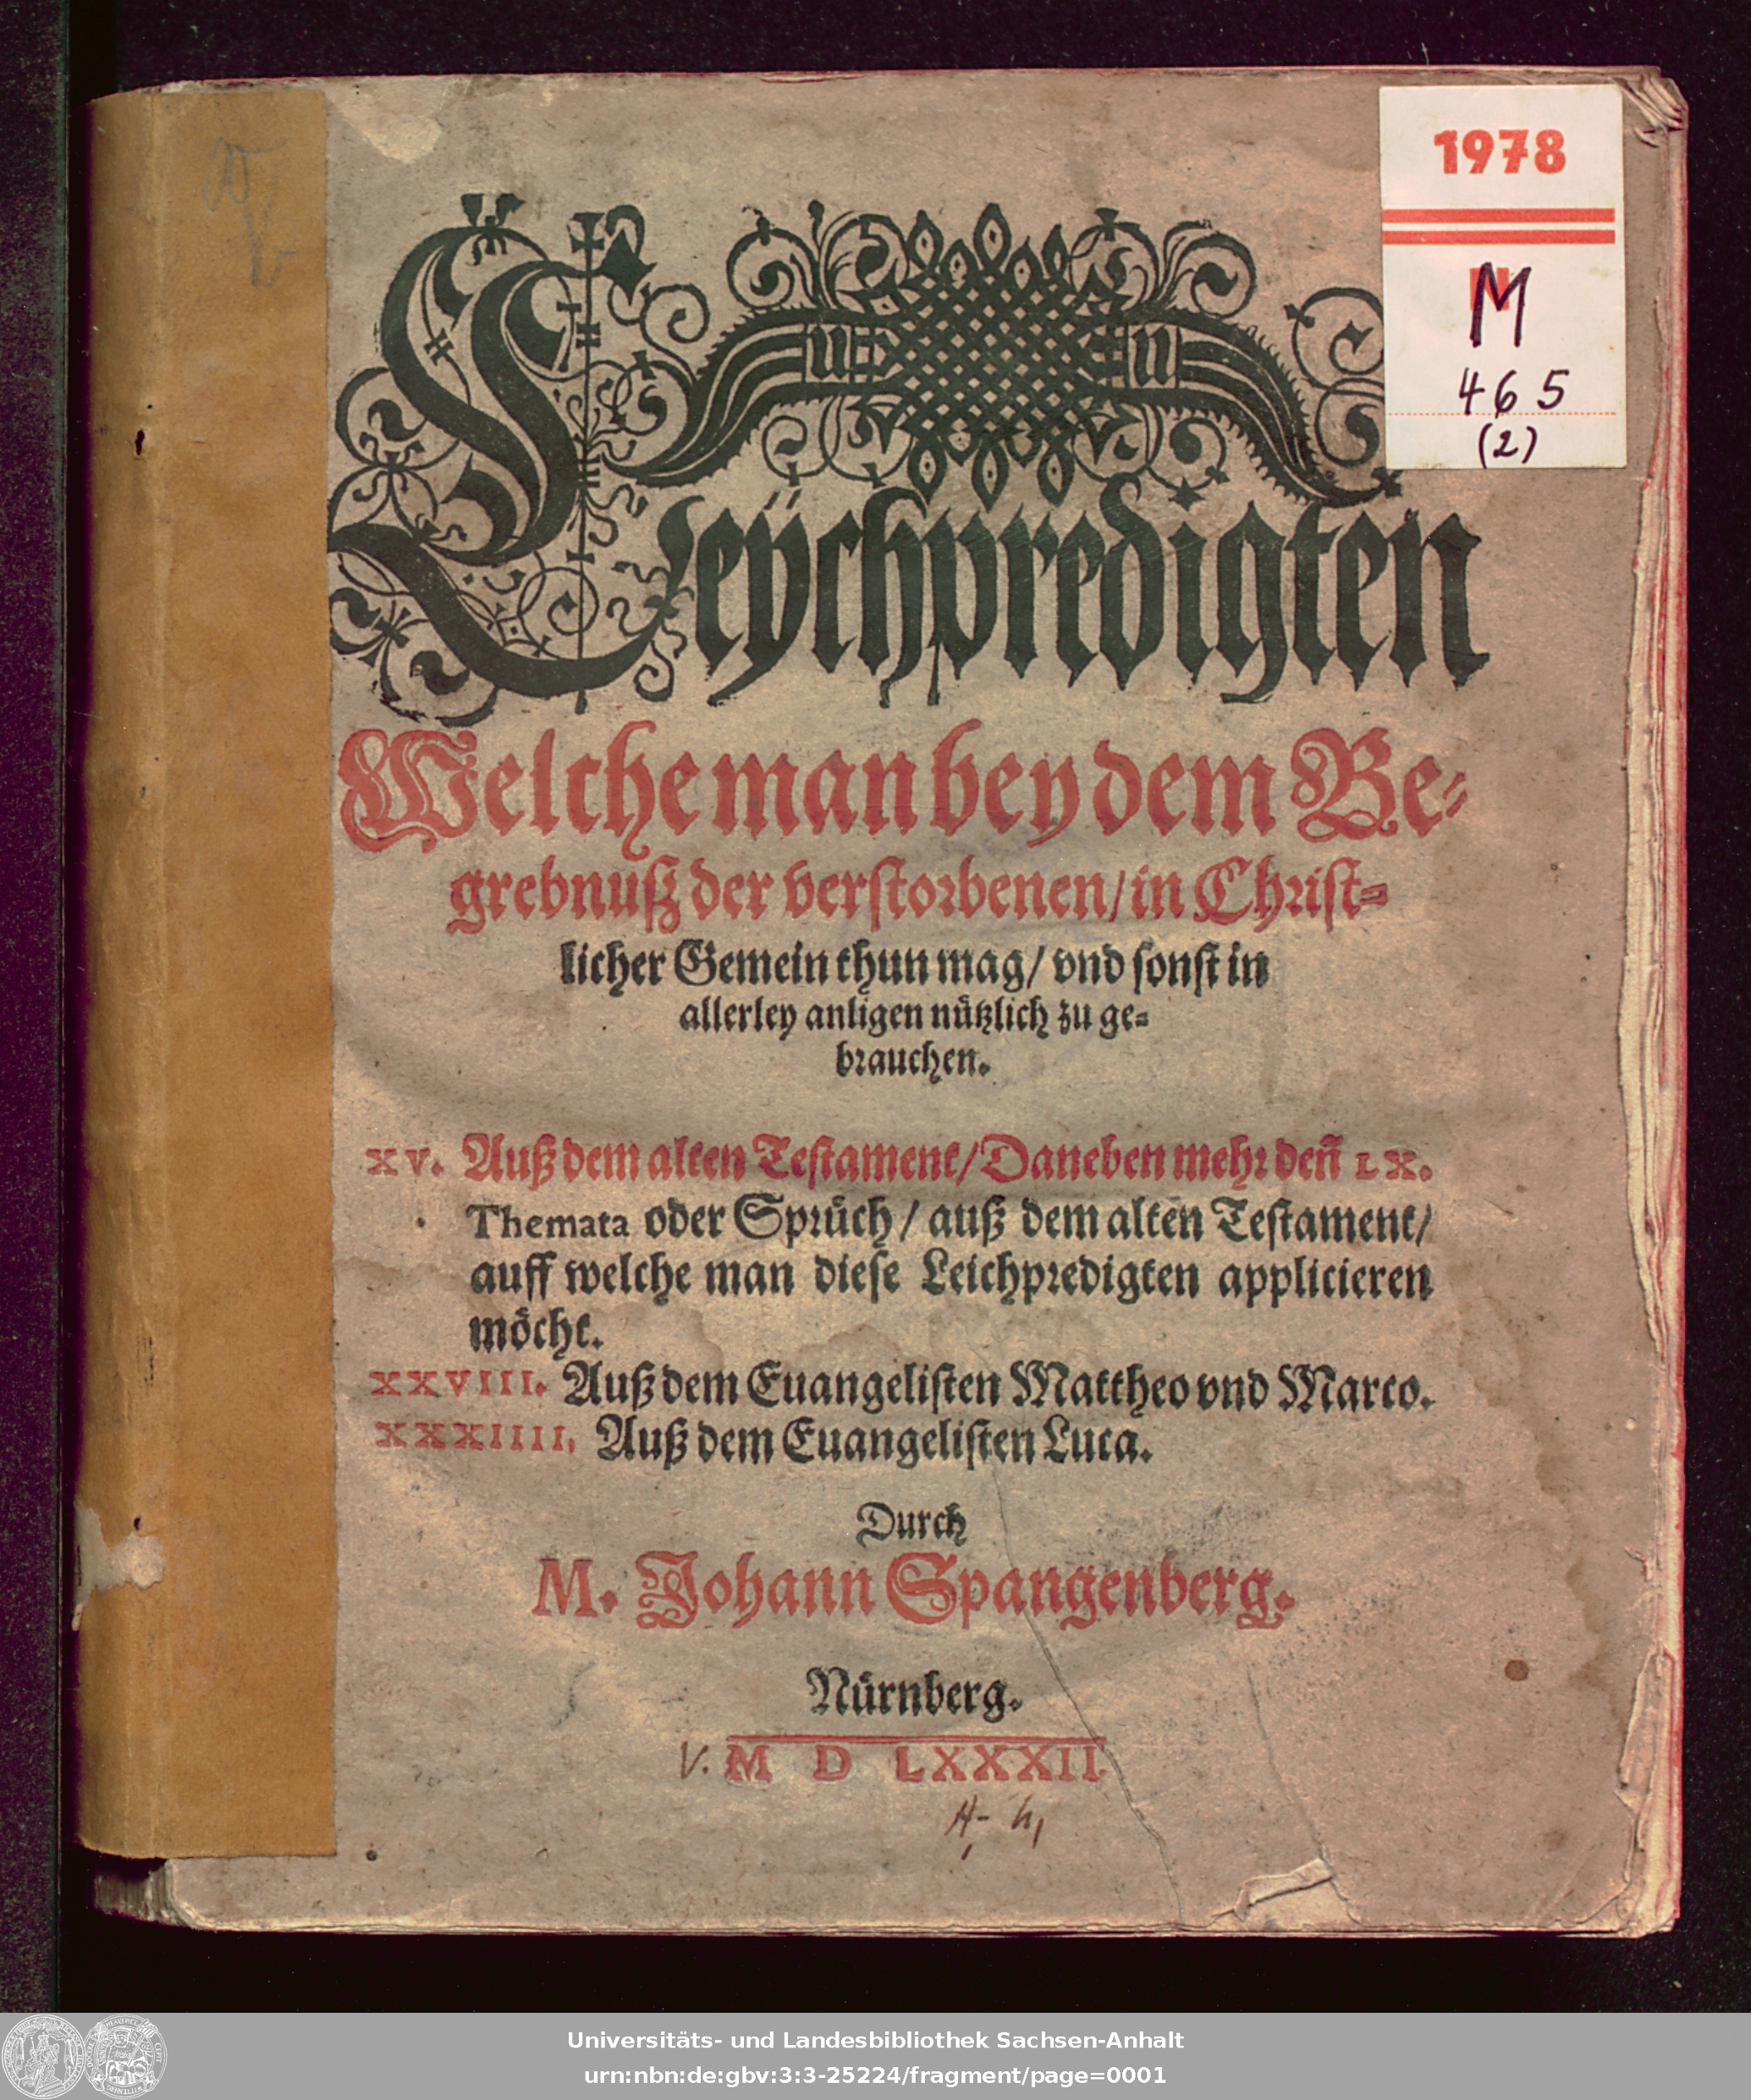 1978
M
465
(2)
Leÿchpredigten
Welche man bey dem Be-
grebnuß der verstorbenen/ in Christ-
licher Gemein thun mag/ vnd sonst in
allerley anligen nützlich zu ge-
brauchen.
XV. Auß dem alten Testament/ Daneben mehr deñ LX.
Themata oder Sprüch/ auß dem alten Testament/
auff welche man diese Leichpredigten applicieren
möcht.
XXVIII. Auß dem Euangelisten Mattheo vnd Marco.
XXXIIII. Auß dem Euangelisten Luca.
Durch
M. Johann Spangenberg.
Nürnberg.
V. M D LXXXII.
Universitäts- und Landesbibliothek Sachsen-Anhalt
urn:nbn:de:gbv:3:3-25224/fragment/page=0001